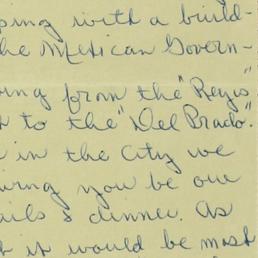 ping with a build-
he Mexican Govern-
ing from the "Regis"
to the "Del Prado."
in the City we
you be our
ails & dinner. As
it would be most